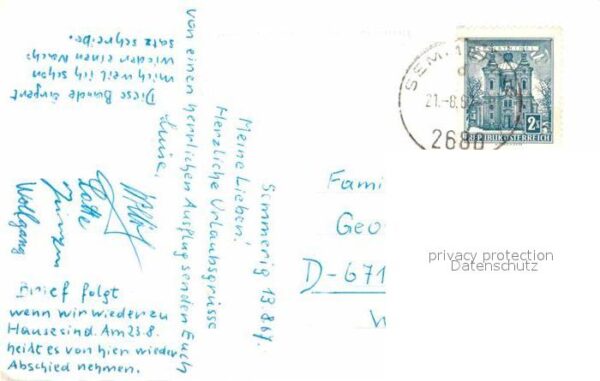 Semmerig 13.8.67.
Meine Lieben!
Herzliche Urlaubsgrüsse
von einen herrlichen Ausflug senden Euch
Luise,
Lotte
Jürgen
Wolfgang
Diese Bande ärgert
mich weil ich schon
wieder einen Nach=
satz schreibe.
Brief folgt
wenn wir wieder zu
Hause sind. Am 23.8.
heißt es von hier wieder
Abschied nehmen.
SEM
21.-8.6
2680
2S
REPUBLIK ÖSTERREICH
Fami
Geo
D-671
privacy protection
Datenschutz